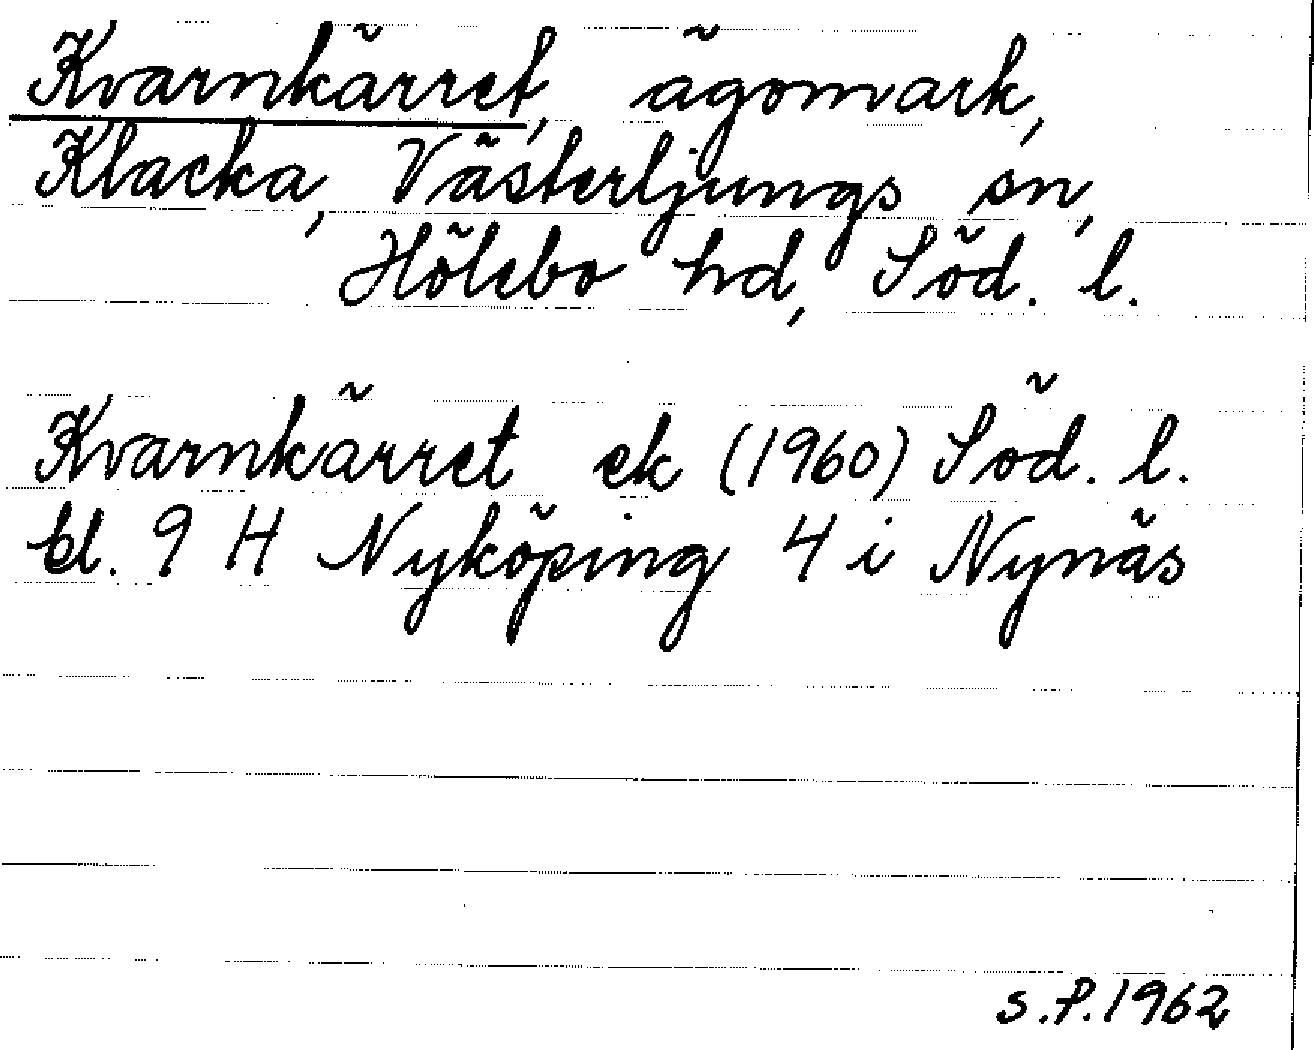 Kvarnkärret, ägomark,
Klacka, Västerljungs sn,
Hölebo hd, Söd. l.
Kvarnkärret ek (1960) Söd. l.
bl. 9 H Nyköping 4 i Nynäs
S.P. 1962